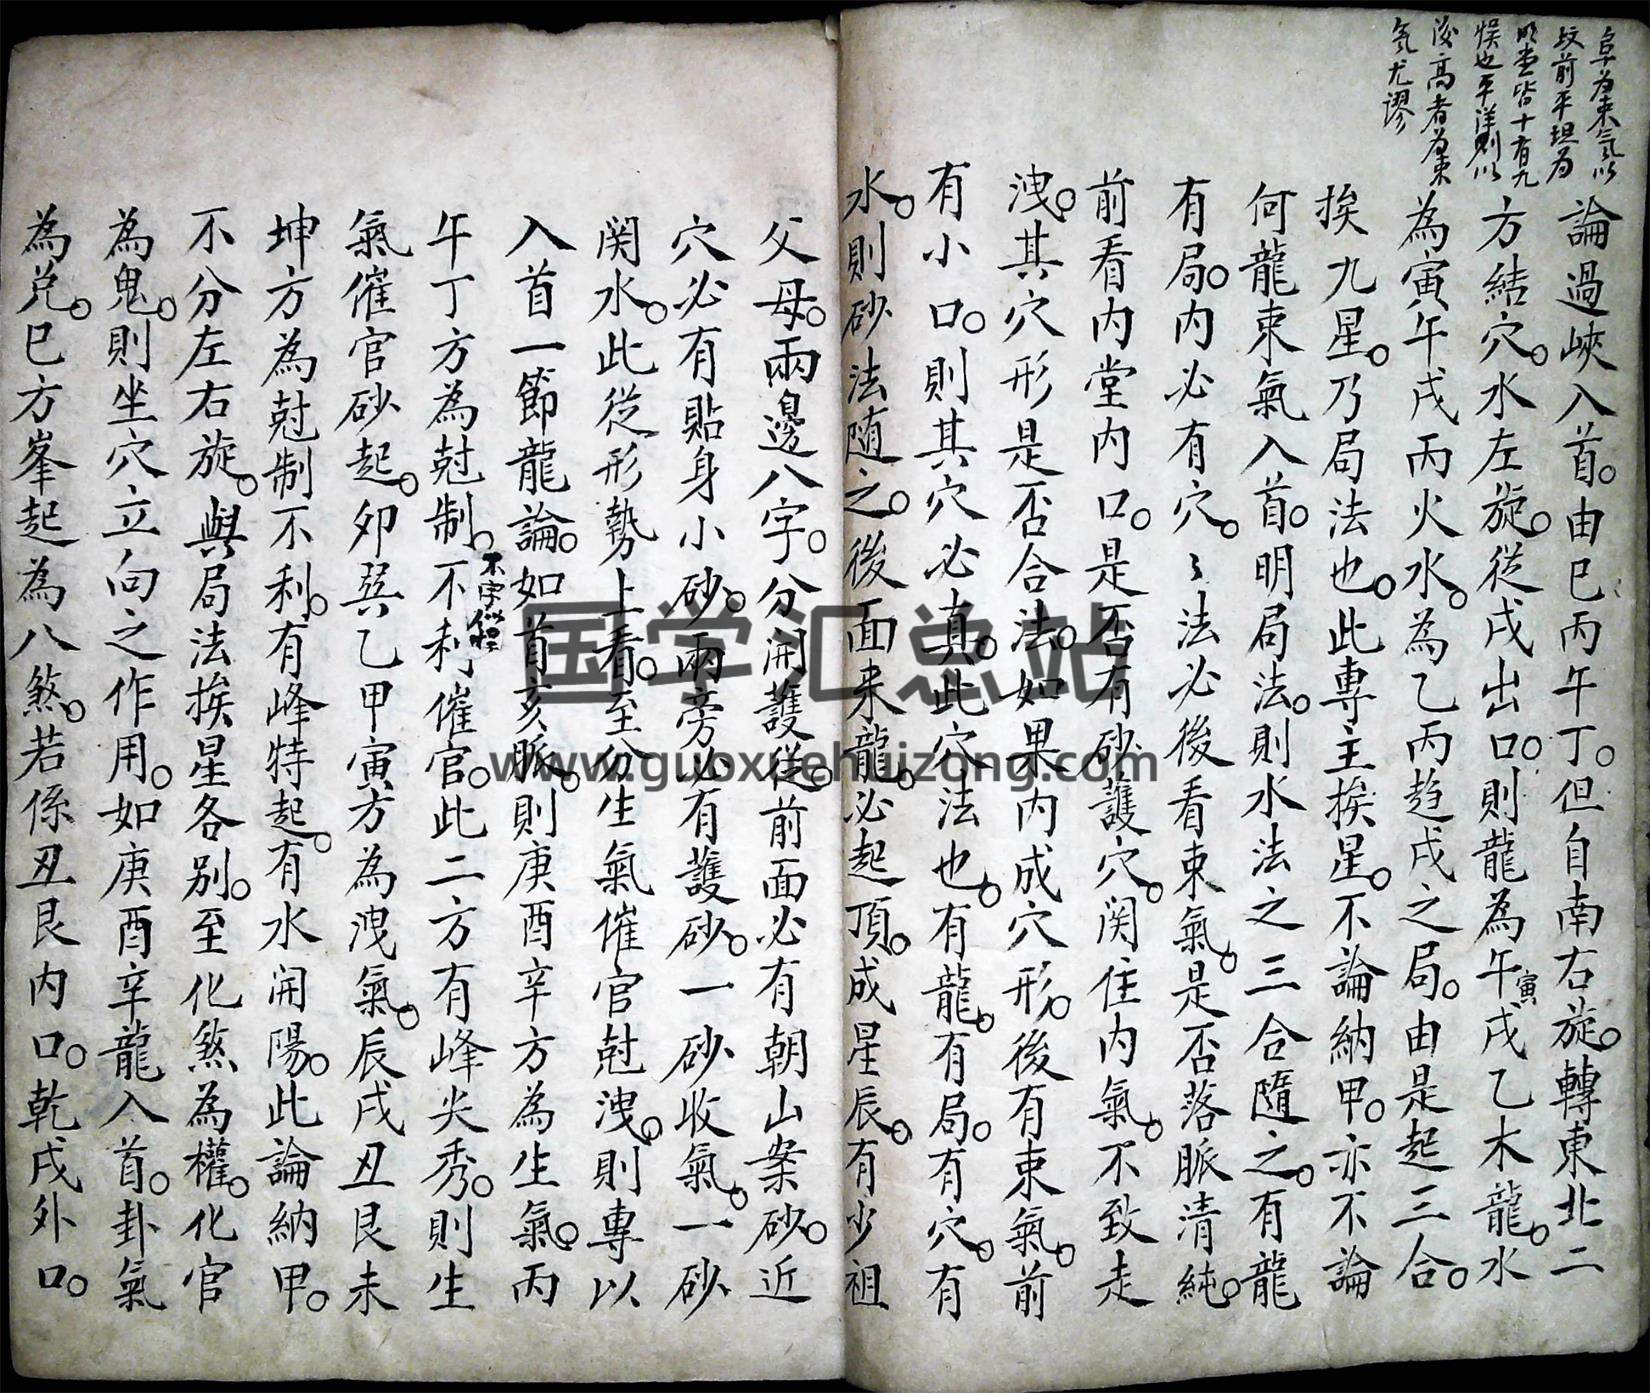 阜為束氣以
坟前平坦為
明堂皆十有九
悮也平洋則以
後高者為束
氣尤謬
論過峽入首。由巳丙午丁。但自南右旋。轉東北二
方結穴。水左旋。從戌出口。則龍為午寅戌乙木龍。水
為寅午戌丙火水。為乙丙趋戌之局。由是起三合。
挨九星。乃局法也。此專主挨星。不論納甲。亦不論
何龍束氣入首。明局法。則水法之三合隨之。有龍
有局。內必有穴。〻法必後看束氣。是否落脈清純。
前看內堂內口。是否有砂護穴。関住內氣。不致走
洩。其穴形是否合法。如果內成穴形。後有束氣。前
有小口。則其穴必真。此穴法也。有龍。有局。有穴。有
水。則砂法随之。後面来龍。必起頂。成星辰。有少祖
父母。兩邊八字。分開護從。前面必有朝山案砂。近
穴必有貼身小砂。兩旁必有護砂。一砂收氣。一砂
関水。此從形勢上看。至分生氣催官尅洩。則專以
入首一節龍論。如首亥脈。則庚酉辛方為生氣。丙
午丁方為尅制。不利催官。此二方有峰尖秀。則生
不字似悮
氣催官砂起。卯巽乙甲寅方為洩氣。辰戌丑艮未
坤方為尅制不利。有峰特起。有水開陽。此論納甲。
不分左右旋。與局法挨星各別。至化煞為權。化官
為鬼。則坐穴立向之作用。如庚酉辛龍入首。卦氣
為兌。巳方峯起為八煞。若係丑艮內口。乾戌外口。
国学汇总站
www.guoxuehuizong.com